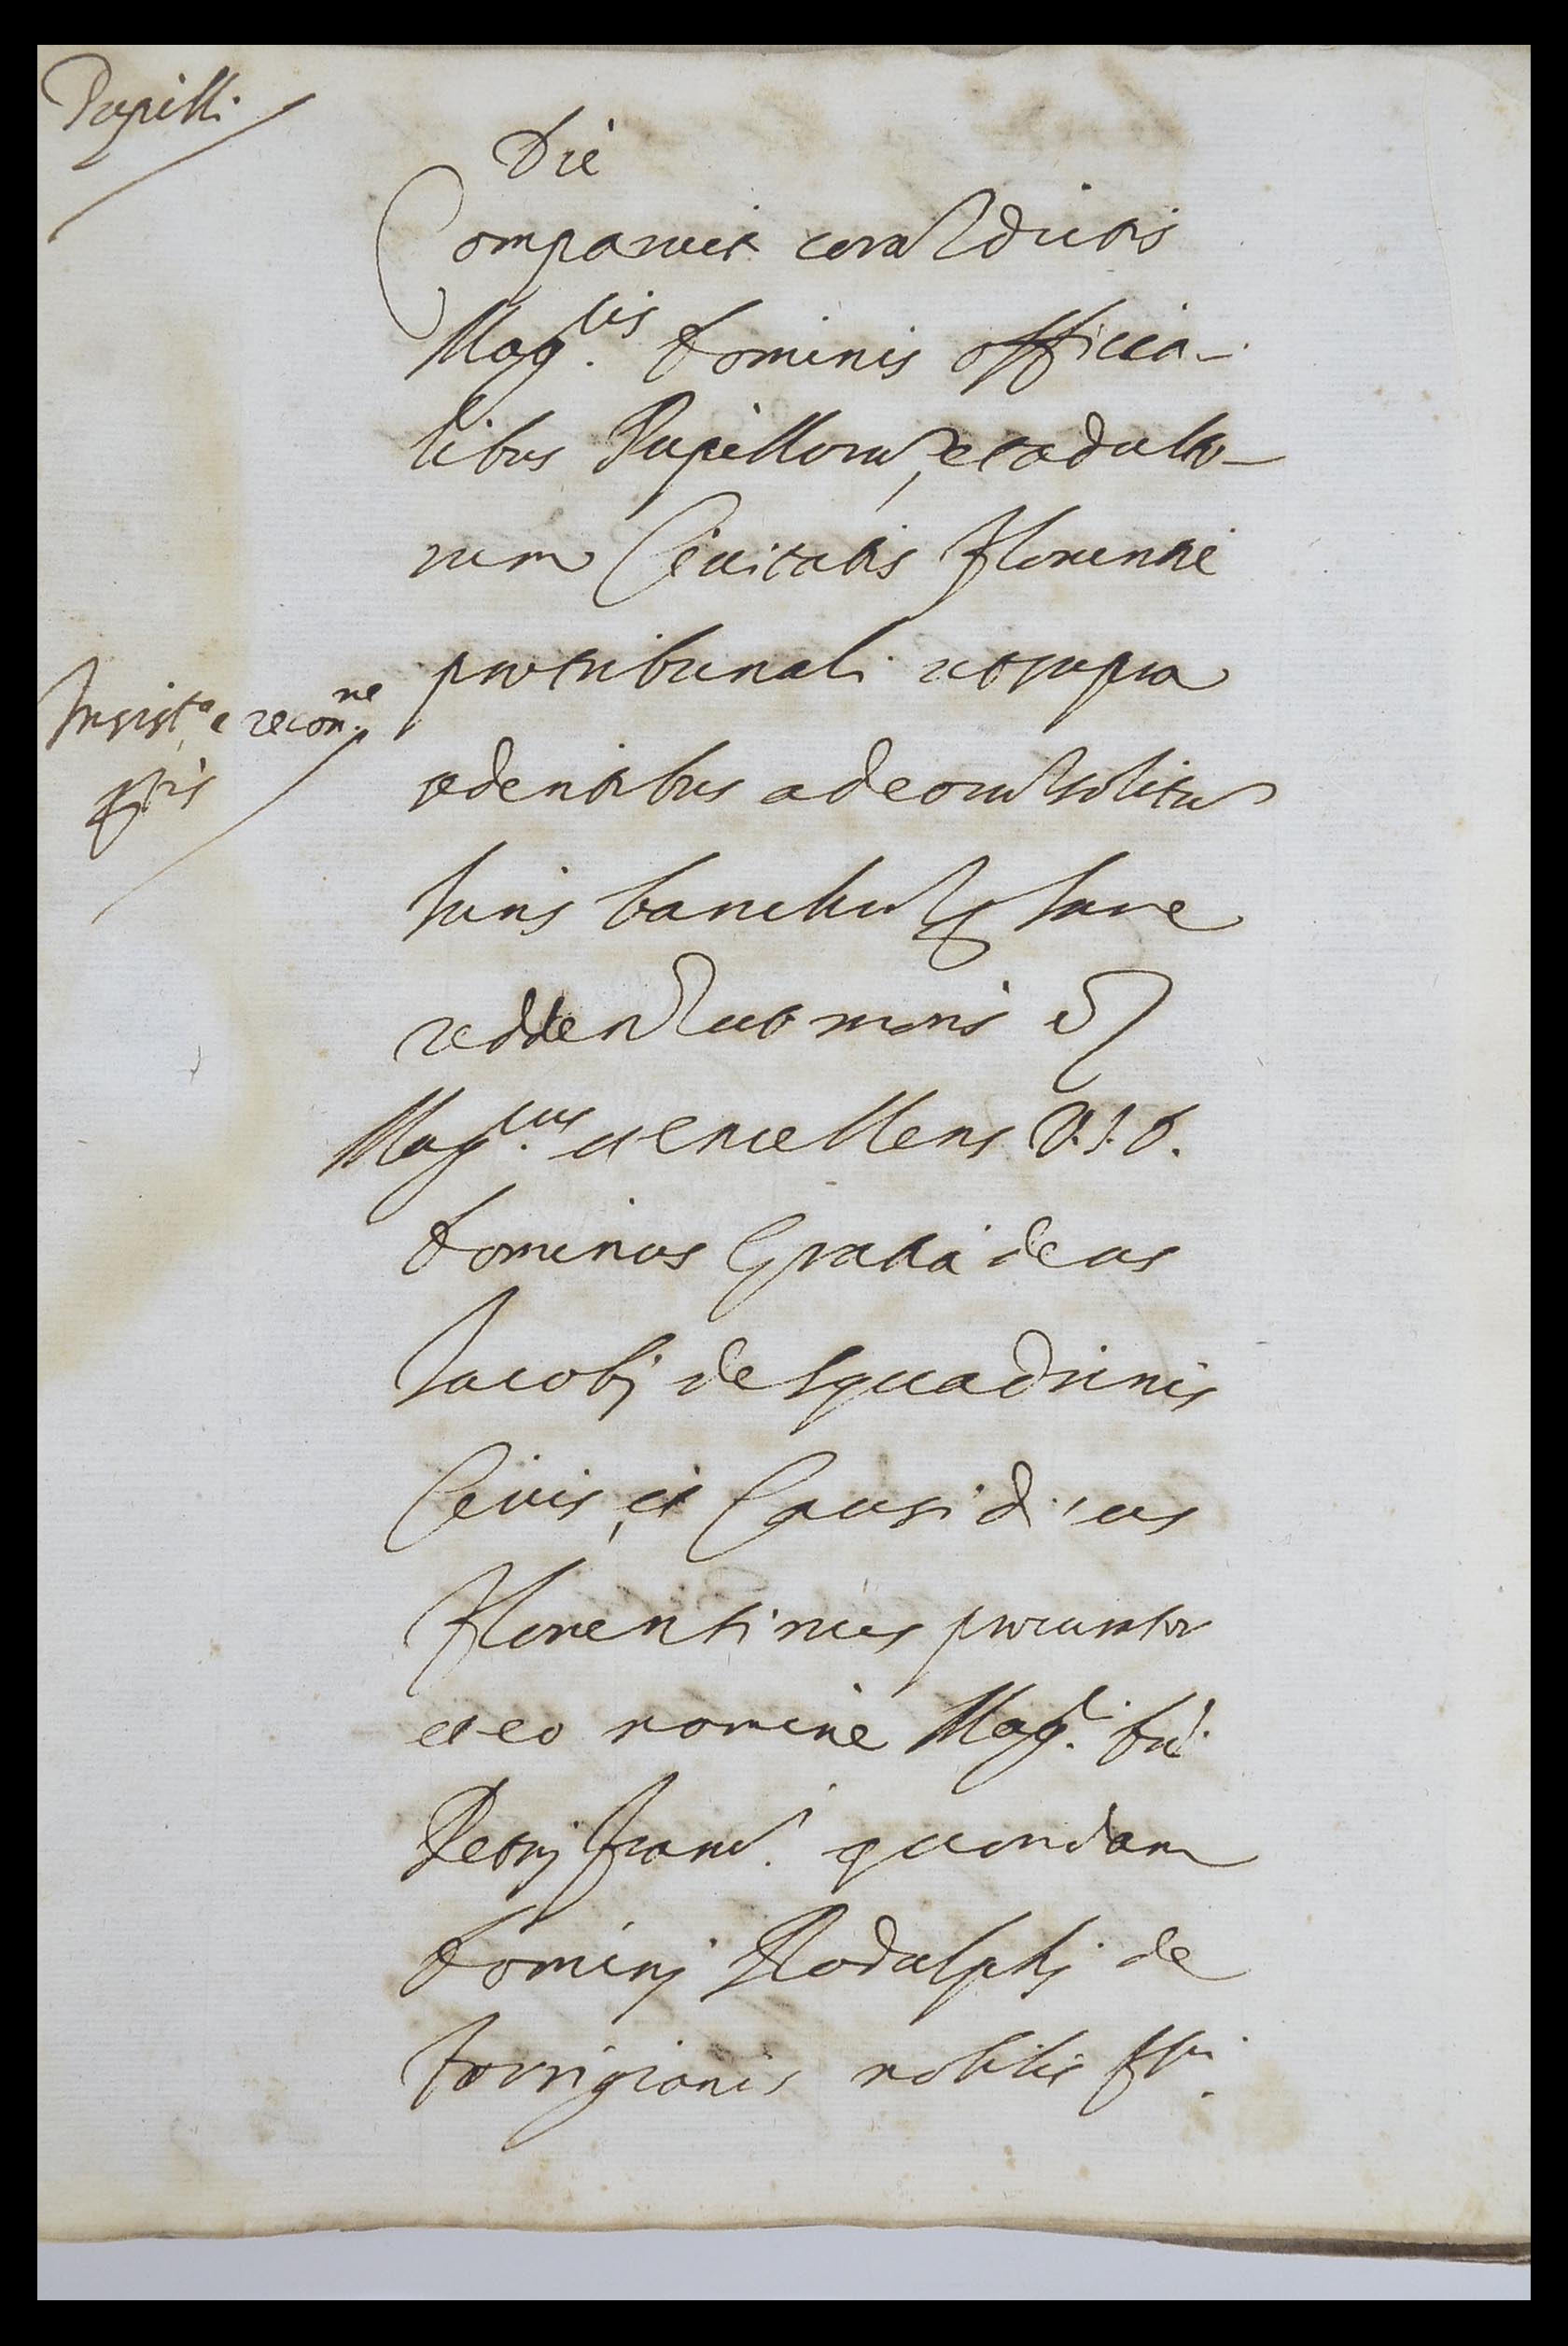 Pupilli
Die
Comparuit coram dictis
Mag.cis Dominis officia-
libus Pupillorum, et adulto-
rum Civitatis Florentie
pro tribunali ut supra
sedentibus ad eorum solitum
Iuris banchum
Insist.a e recon.ne
Iure
reddendum ut moris
Mag.cus et excellens
Dominus Gratiadeus
Iacobj de Squadrinis
Civis, et Causidicus
Florentinus procurator
et eo nomine Mag.ci Dni
Petrj Franci quondam
Dominj Rodulphj de
Torrigianis nobilis flni.